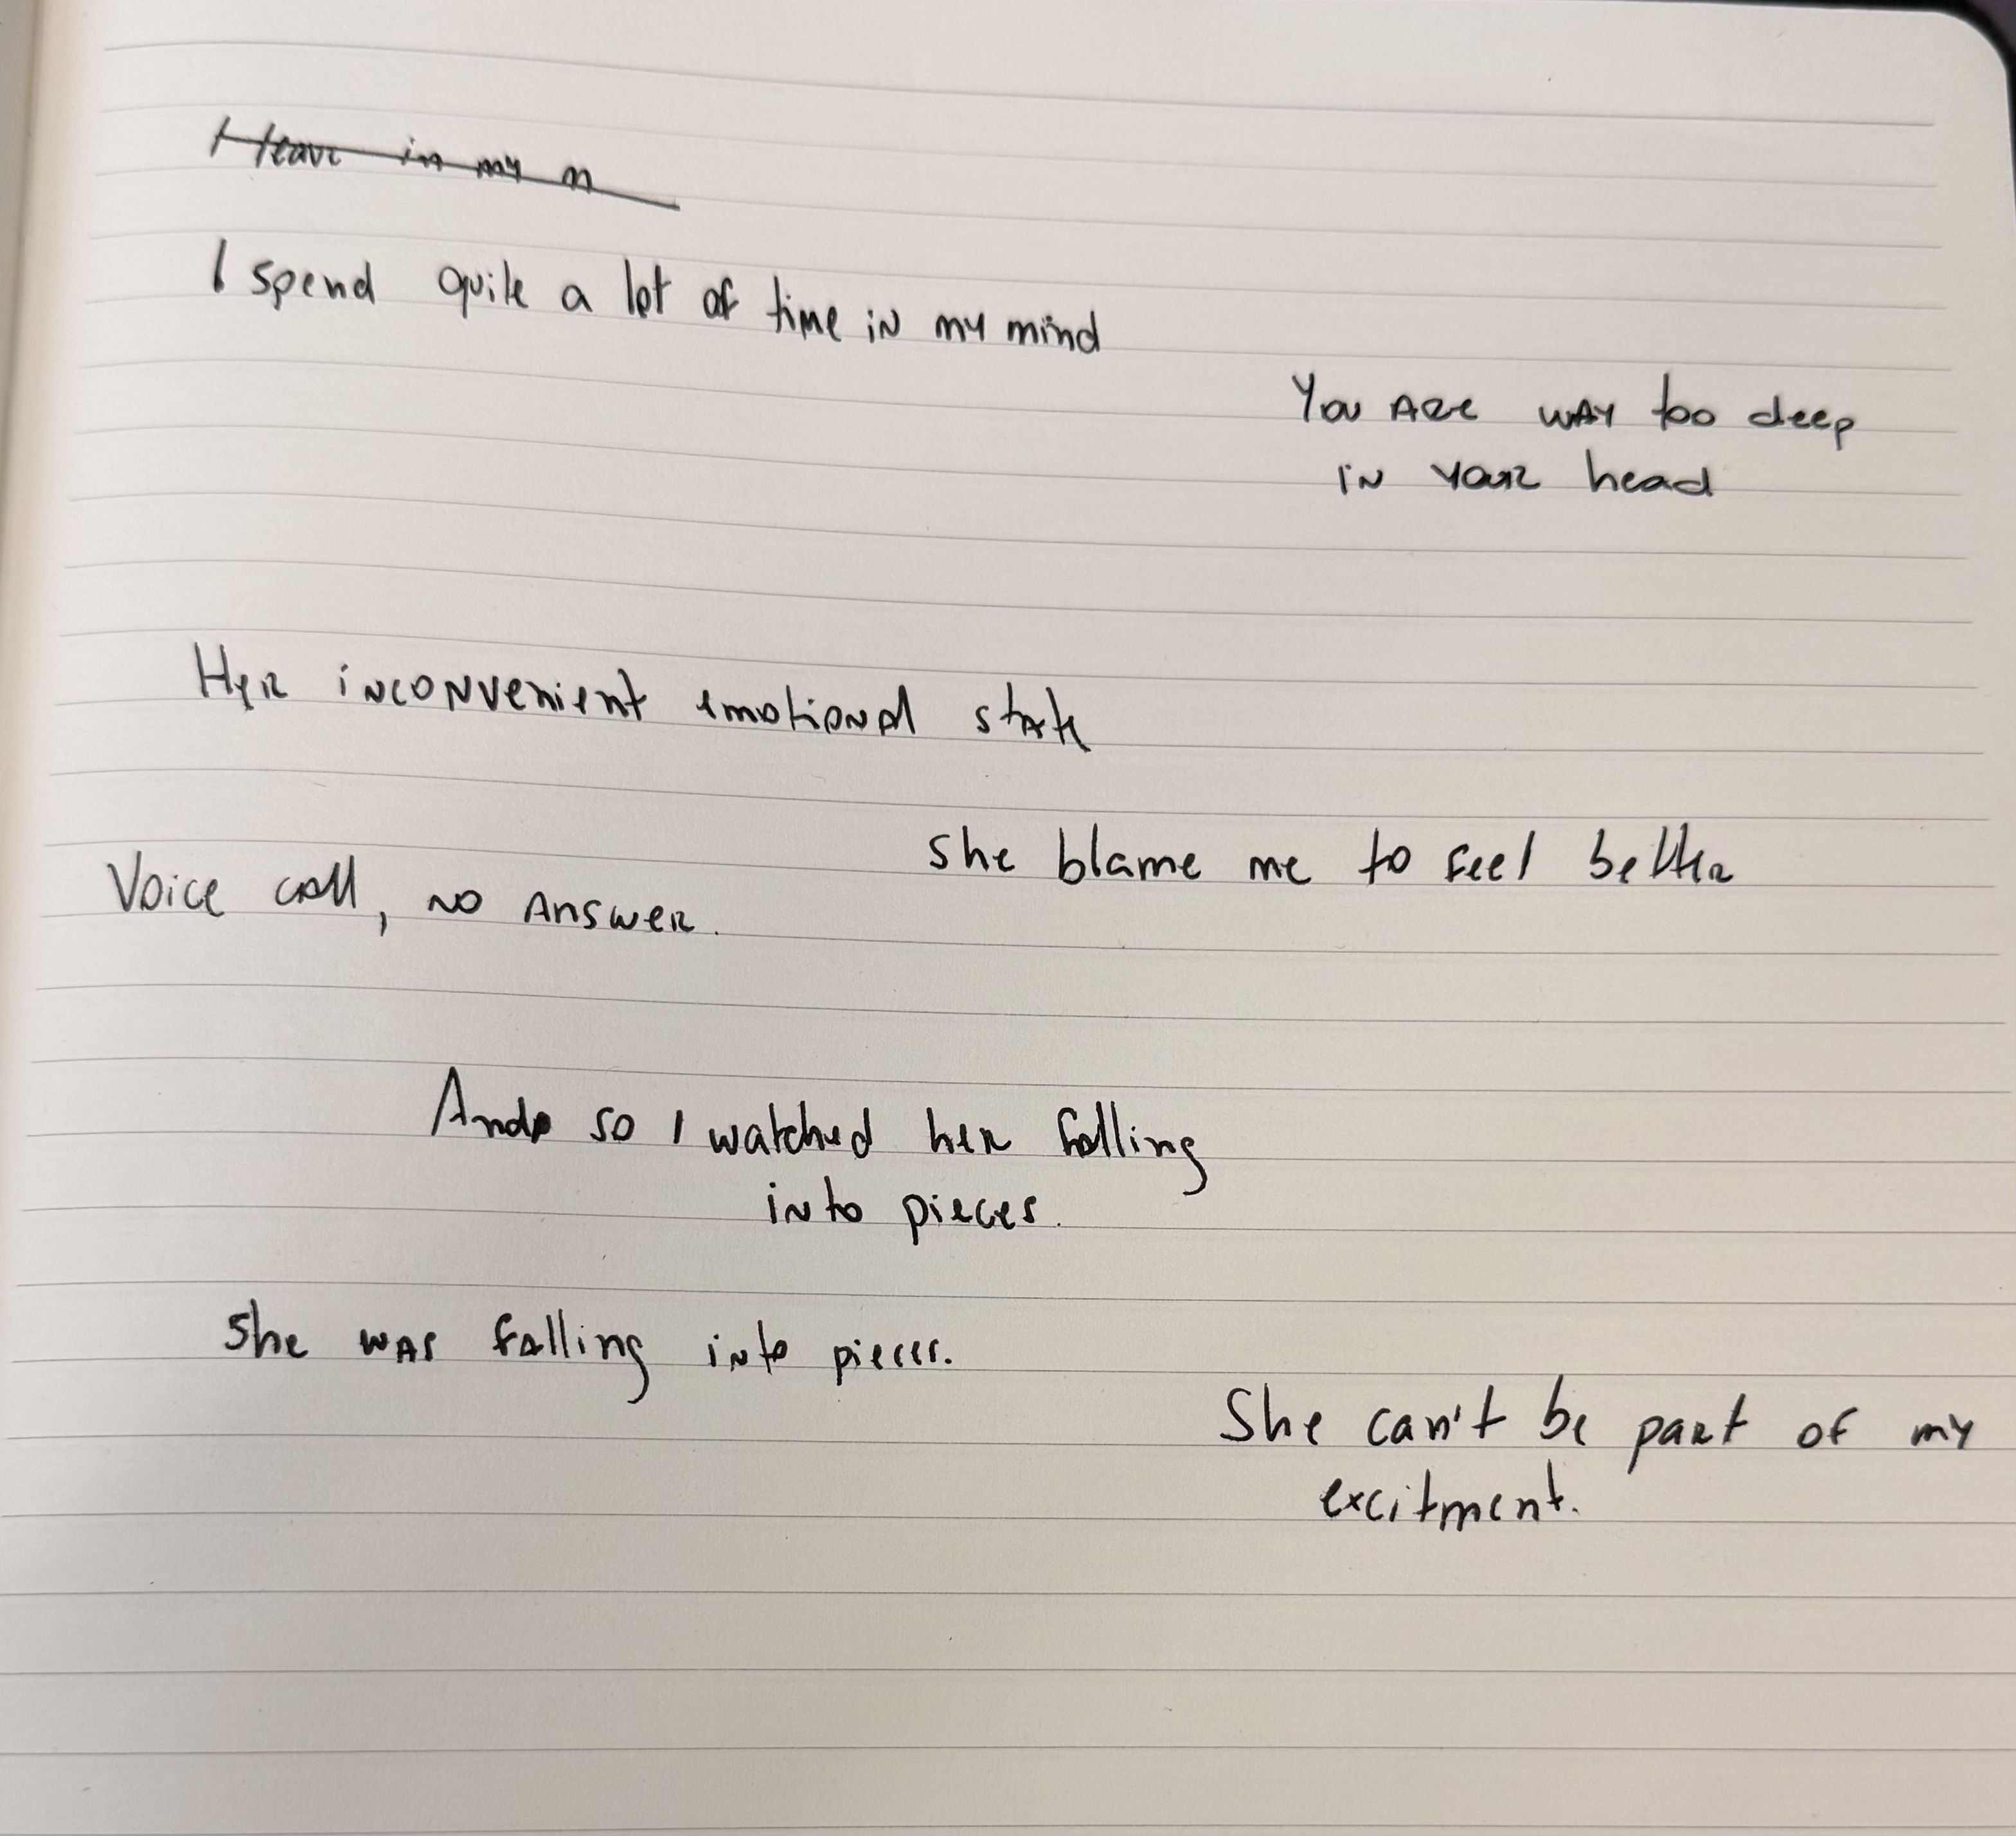 in my
I spend quite a lot of time in my mind
You are way too deep
in your head
Her inconvenient emotional state
she blame me to feel better
Voice call, no answer.
And so I watched her falling
into pieces.
She was falling into pieces.
She can't be part of my
excitment.